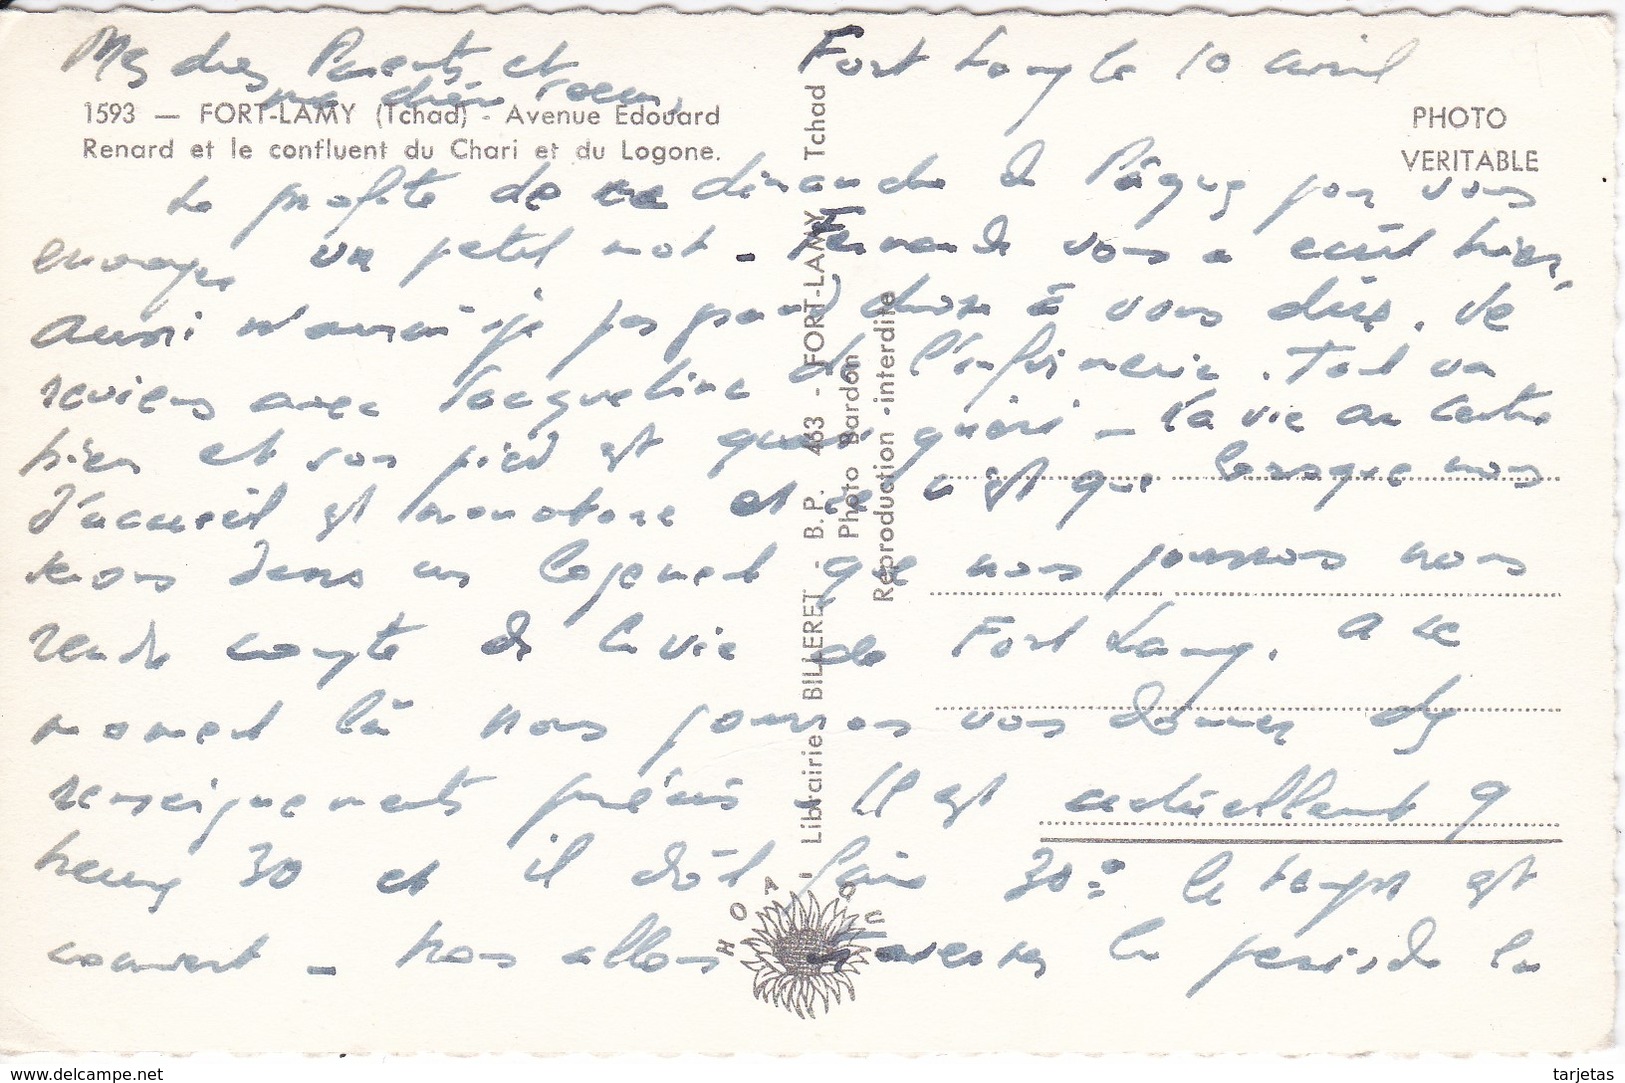 Fort Lamy le 10 avril
Mes chers Parents et
ma chère soeur,
1593 — FORT-LAMY (Tchad) - Avenue Edouard
Renard et le confluent du Chari et du Logone.
PHOTO
VERITABLE
Je profite de ce dimanche de Pâques pour vous
envoyer un petit mot. Fernande vous a écrit hier,
aussi n'aurai-je pas grand chose à vous dire. Je
reviens avec Jacqueline de l'infirmerie. Tout va
bien et son pied est quasi guéri - La vie au Centre
d'accueil est monotone et ce n'est que lorsque nous
serons dans un logement que nous pourrons nous
rendre compte de la vie de Fort Lamy. A ce
moment là nous pourrons vous donner des
renseignements précis. Il est actuellement 9
heures 30 et il doit faire 30° le temps est
couvert - Nous allons traverser la période la
Librairie BILLERET - B.P. 463 - FORT-LAMY Tchad
Photo Bardon
Reproduction interdite
HOA-QUI
www.delcampe.net
tarjetas